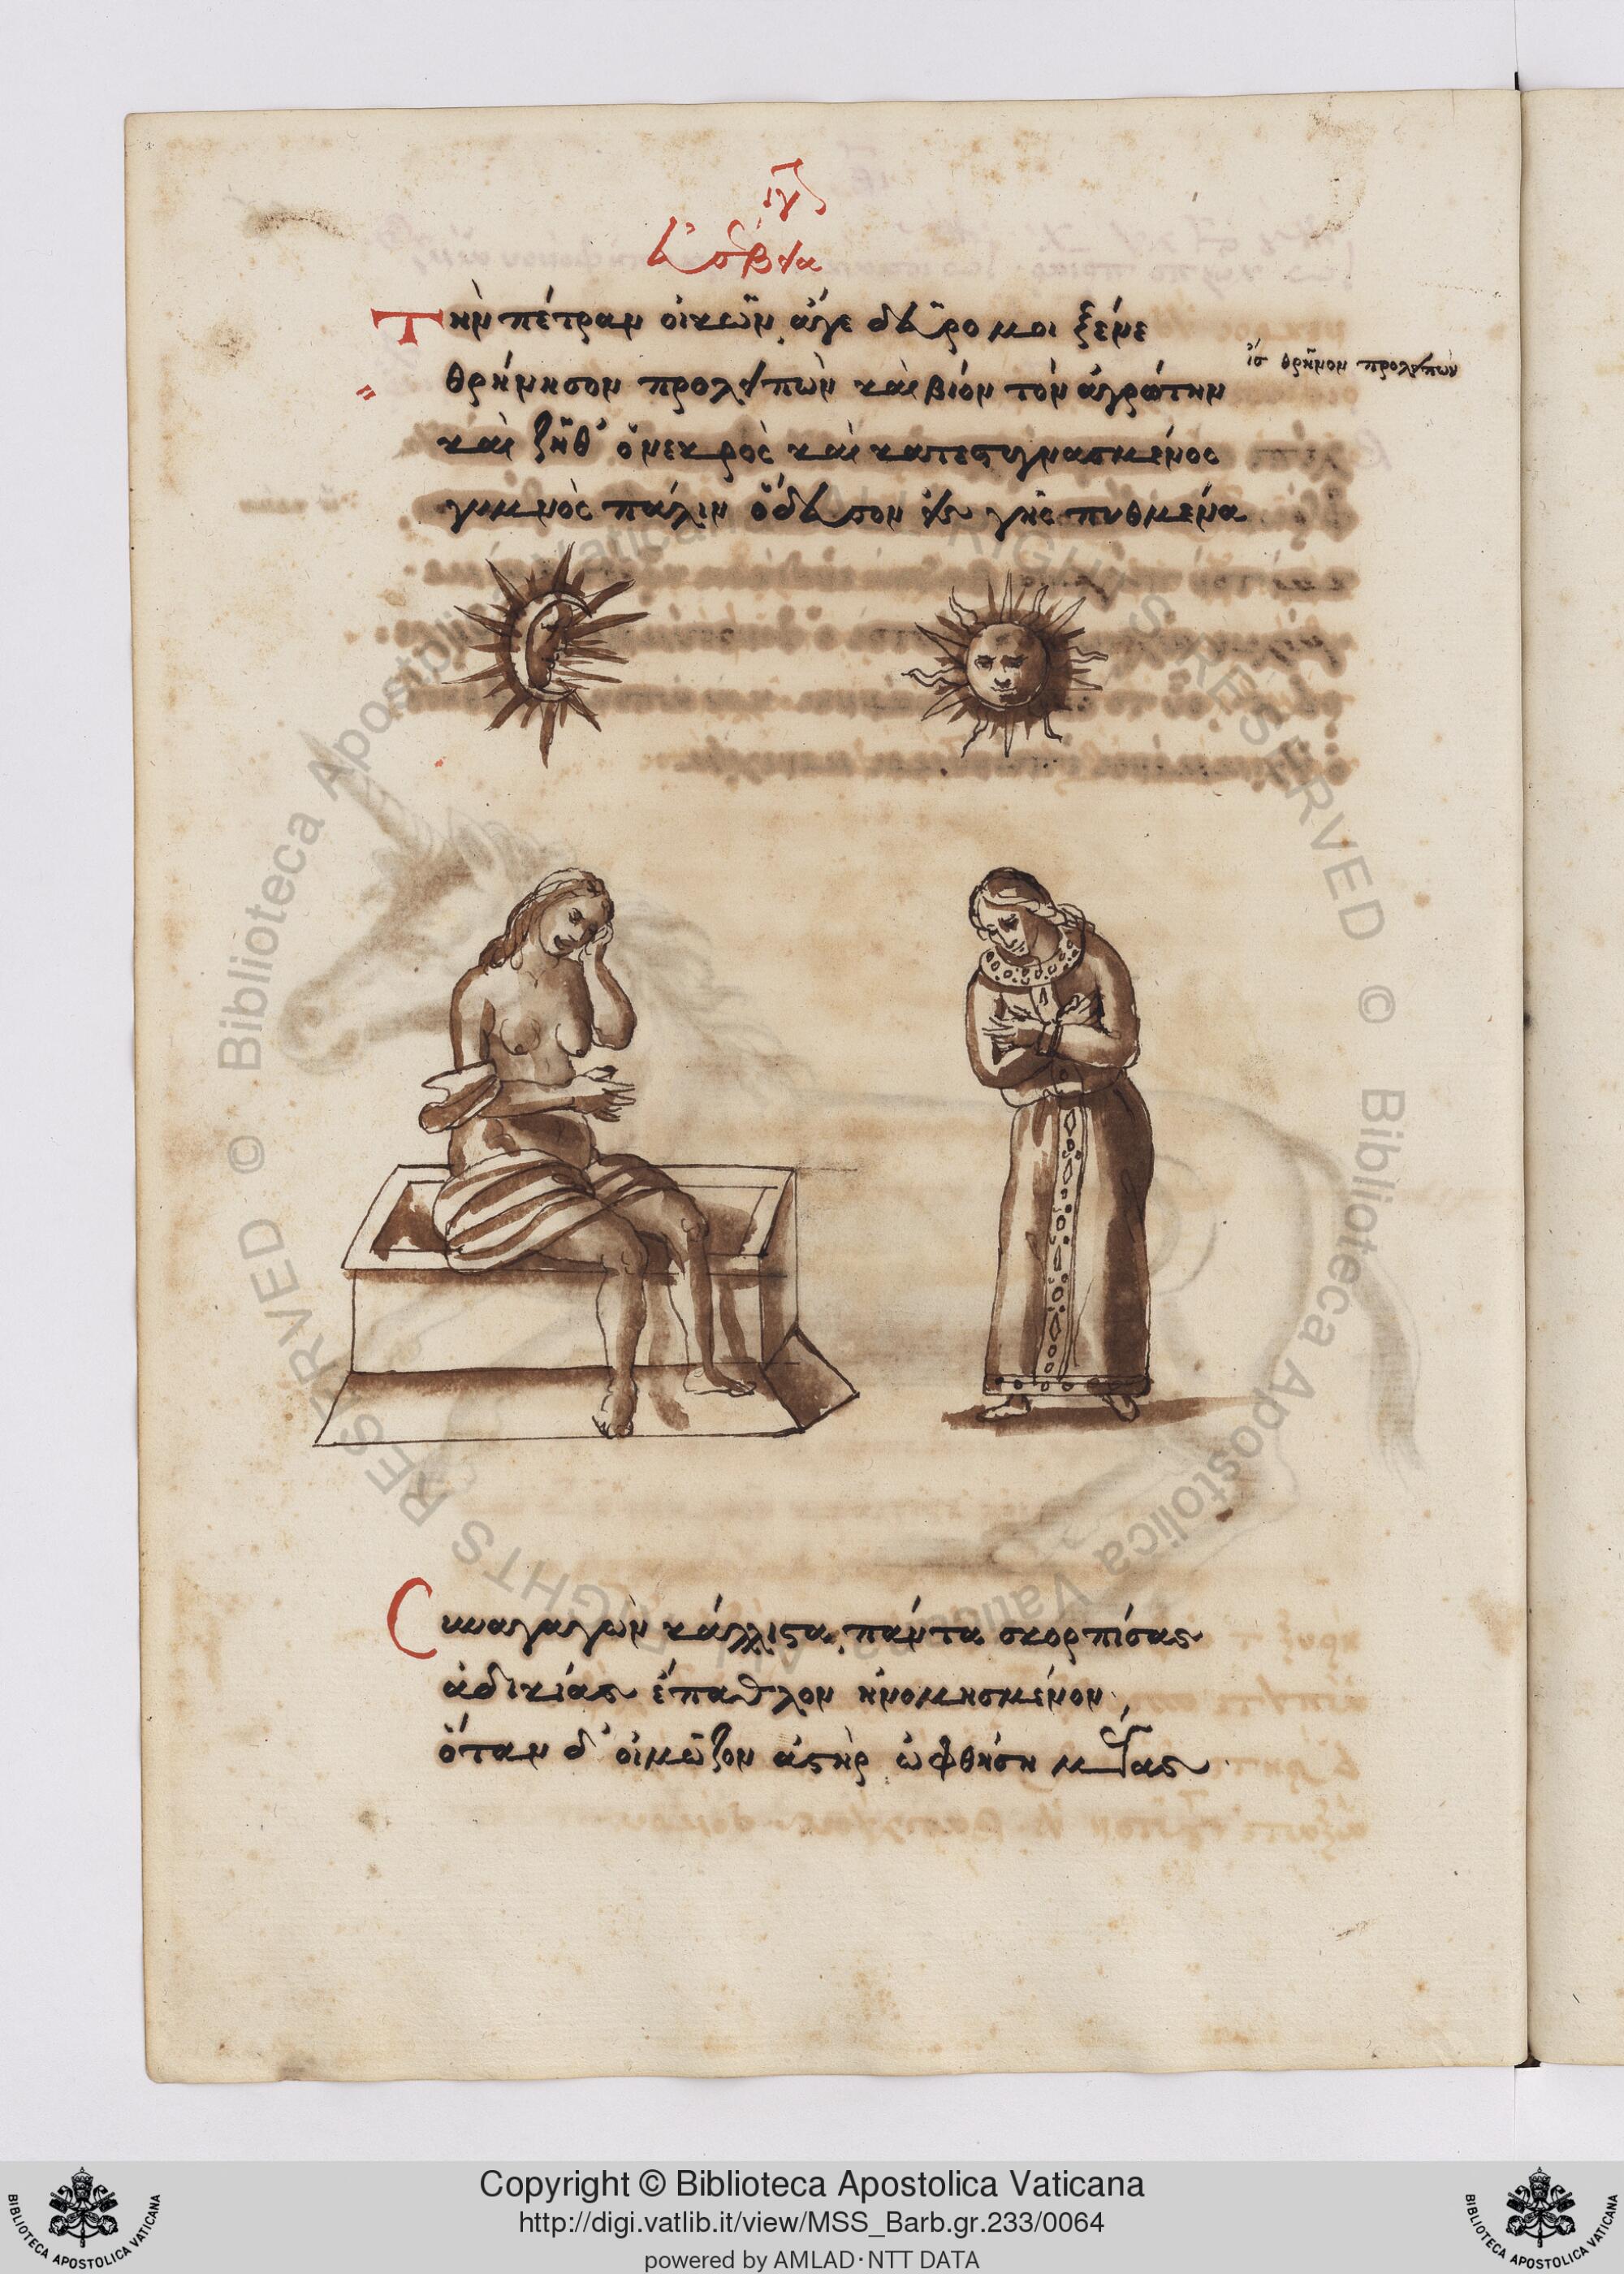 ιγ
Εὐσέβεια
Τὴν πέτραν οἰκῶν, ἄγε δεῦρο μοι ξένε
θρήνησον προλειπὼν καὶ βίον τὸν ἀγρώτην
ἴσ θρῆνον προλειπὼν
καὶ ζῆθ' ὁ νεκρὸς καὶ κατεστυγνασμένος
γυμνὸς πάλιν ὅδευσον ἐκ γῆς πυθμένα
Συναγαγὼν κάλλιστα, πάντα σκορπίσας
ἀδικίας ἔπαθλον ἠνομησμένον,
ὅταν δ' οἰμῶζον ἀστὴρ ὠφθήση μέλας
Copyright © Biblioteca Apostolica Vaticana
http://digi.vatlib.it/view/MSS_Barb.gr.233/0064
powered by AMLAD·NTT DATA
BIBLIOTECA APOSTOLICA VATICANA
BIBLIOTECA APOSTOLICA VATICANA
© Biblioteca Apostolica Vaticana ALL RIGHTS RESERVED © Biblioteca Apostolica Vaticana ALL RIGHTS RESERVED